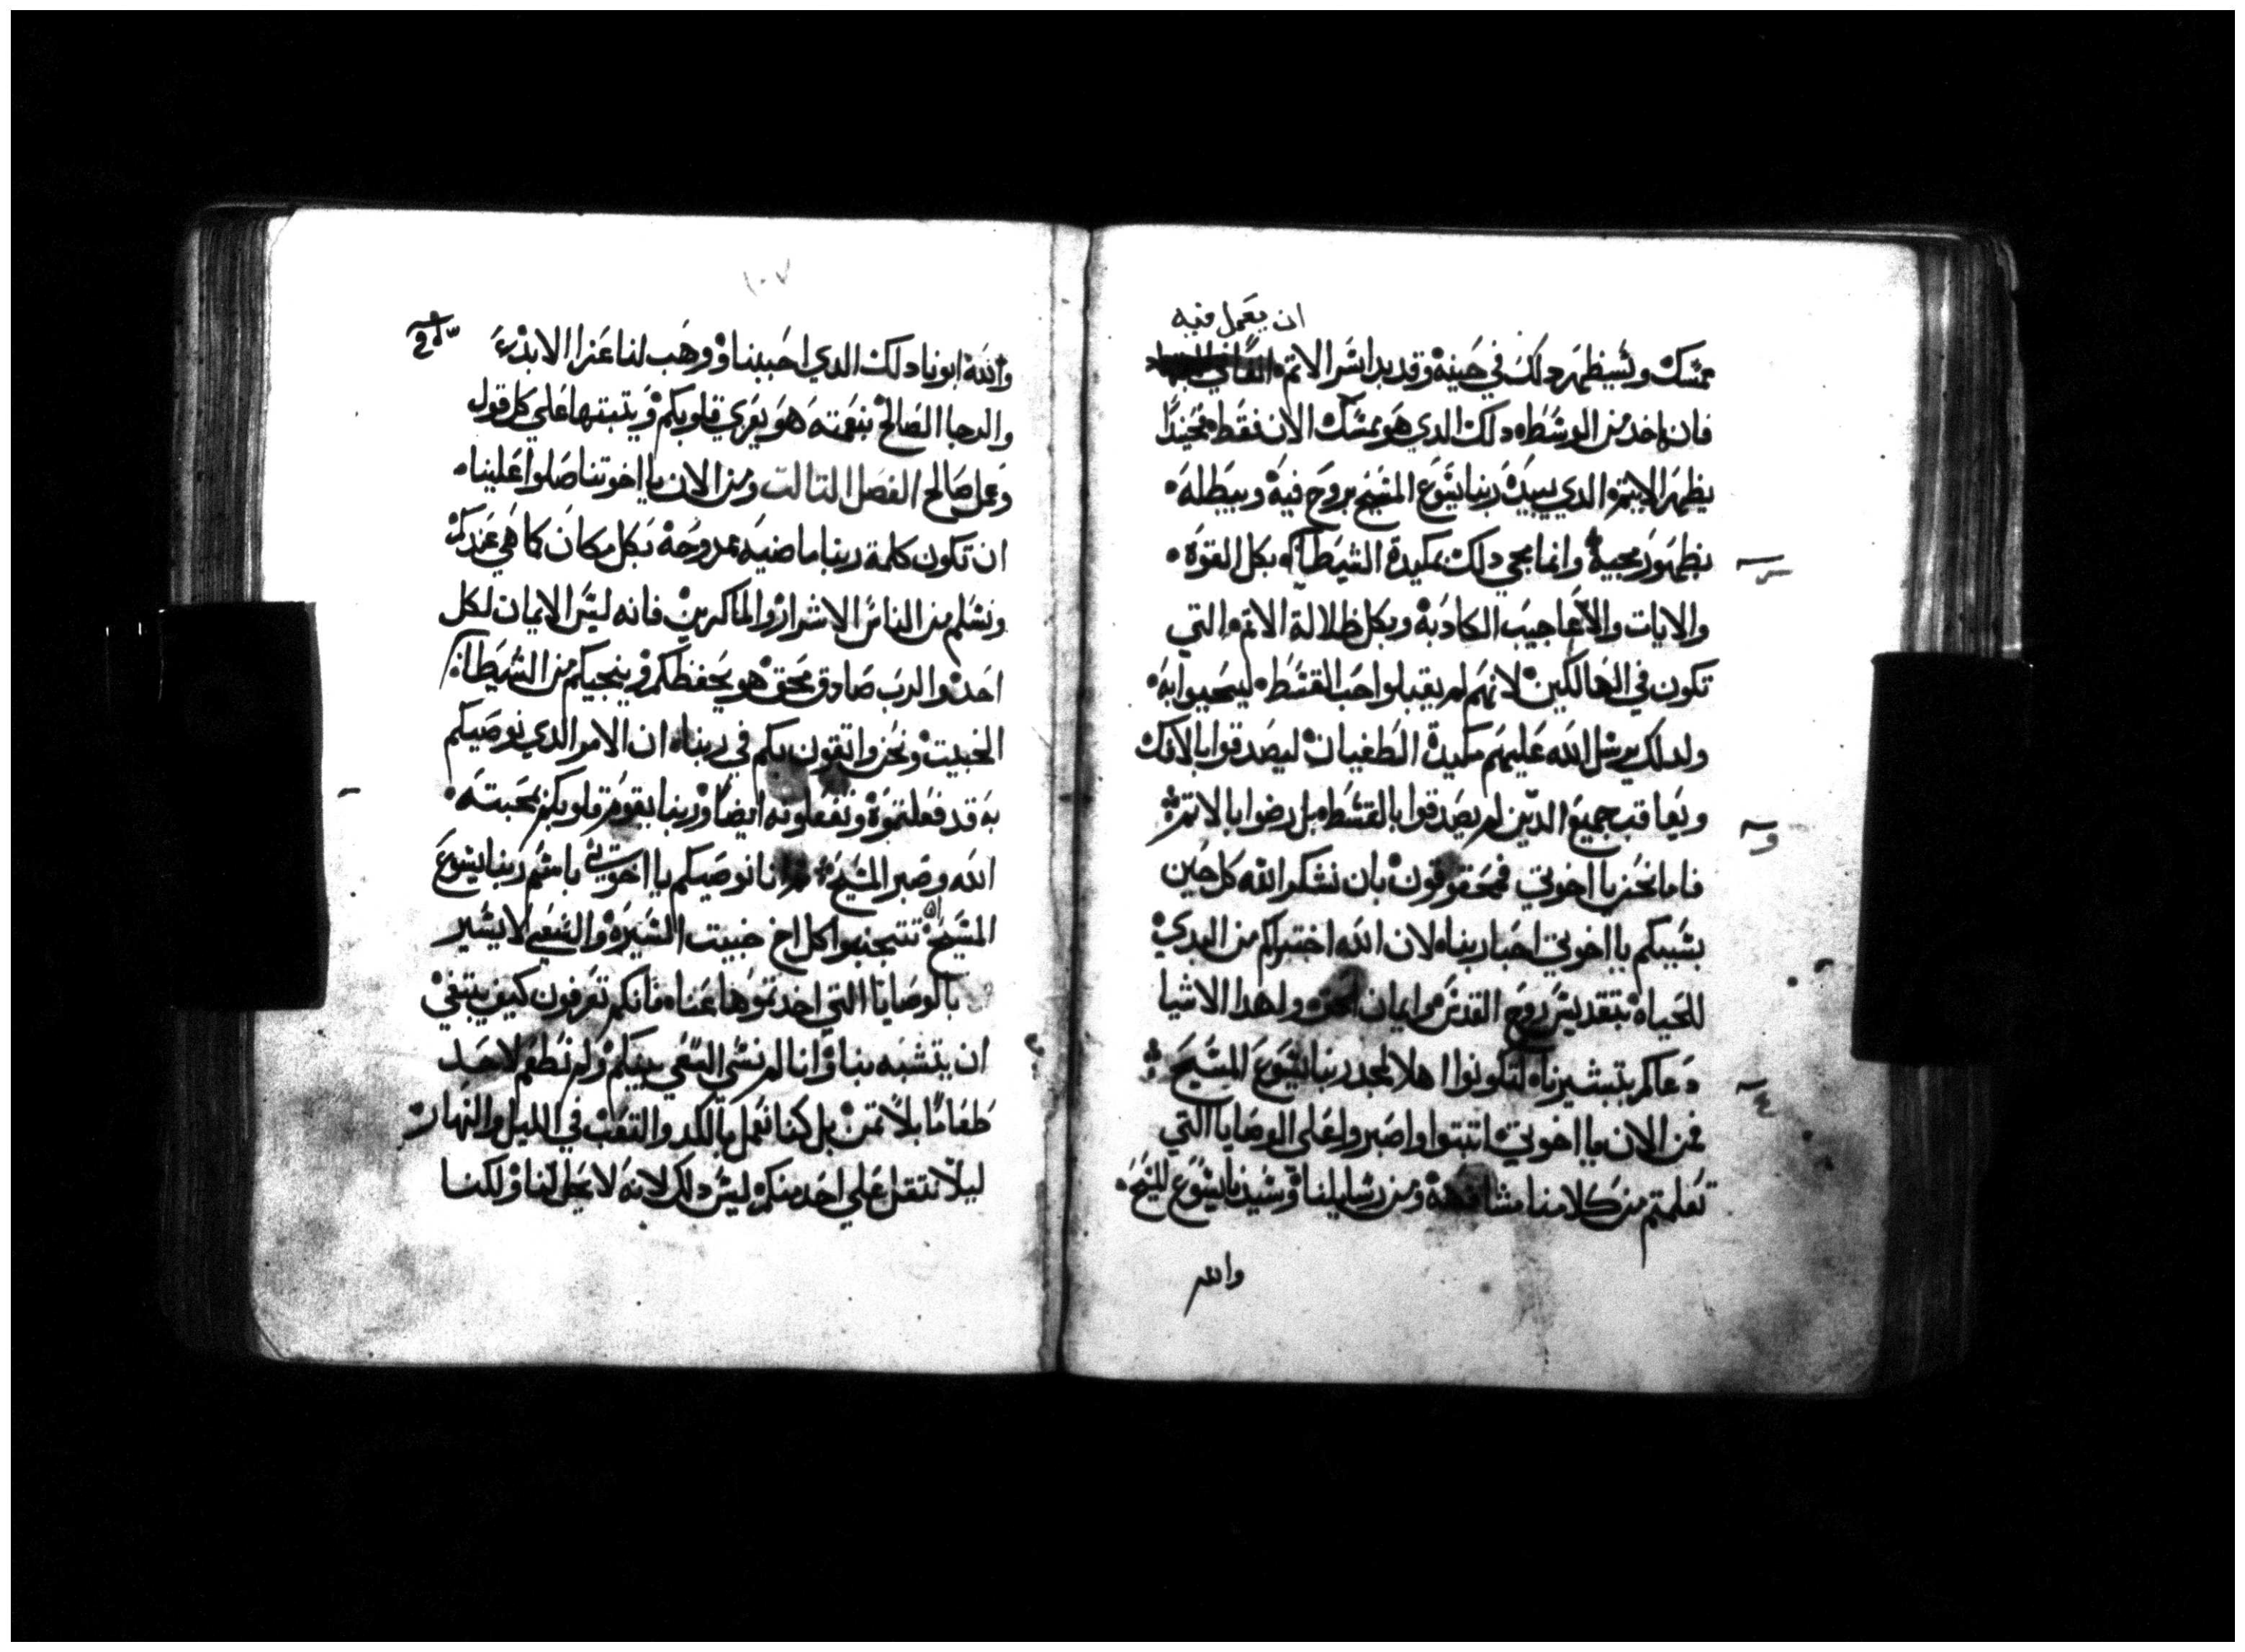 ان يعمل فيه
ممسك وسيظهر دلك في حينه وقد بدا شر الاتم
فان اخد من الوسطه دلك الدي هو ممسك الان فقط فحينيدًا
يظهر الاتيم الدي يبيده ربنا يسوع المسيح بروح فيه ويبطله
بظهور مجيه وانما مجي دلك بمكيدة الشيطان بكل القوه
والايات والاعاجيب الكادبه وبكل ظلالة الاتم التي
تكون في الهالكين لانهم لم يقبلوا حب القسط ليحيوا به
ولدلك يرسل الله عليهم مكيدة الطغيان ليصدقوا بالافك
ويعاقب جميع الدين لم يصدقوا بالقسط بل رضوا بالاتم
فاما نحن يا اخوتي فمحقوقون بان نشكر الله كل حين
بسببكم يا اخوتي احبا ربنا لان الله اختبركم من البدي
للحياه بتقديس روح القدس وايمان الحق ولهدا الاشيا
دعاكم بتبشيرنا لتكونوا اهلا لمجد ربنا يسوع المسيح
فمن الان يا اخوتي اتبتوا واصبروا على الوصايا التي
تعلمتم من كلامنا مشافهه ومن رسايلنا وسيدنا يسوع المسيح
والله
١٠٧
والله ابونا دلك الدي احببنا ووهب لنا عزا الابد
والرجا الصالح بنعمته هو يعزي قلوبكم ويتبتها علي كل قول
وعمل صالح الفصل التالت ومن الان يا اخوتنا صلوا علينا
ان تكون كلمة ربنا ماضيه ممدوحه بكل مكان كما هي عندكم
ونسلم من الناس الاشرار والماكرين فانه ليس الايمان لكل
احد والرب صادق محق هو يحفظكم وينجيكم من الشيطان
الخبيت ونحن واتقون بكم في ربنا ان الامر الدي نوصيكم
به قد فعلتموه وتفعلونه ايضًا وربنا يقوم قلوبكم بمحبته
الله وصبر المسيح انا نوصيكم يا اخوتي باسم ربنا يسوع
المسيح ان تتجنبوا كل اخ خبيت السيره والسعي لا يسير
بالوصايا التي اخدتموها عنا فانكم تعرفون كيف ينبغي
ان يتشبه بنا وانا لم نسي السعي بينكم ولم نطعم لاحد
طعامًا بلا تمن بل كنا نعمل بالكد والتعب في الليل والنهار
ليلا نتقل علي احد منكم ليس دلك لانه لا يحل لنا ولكننا